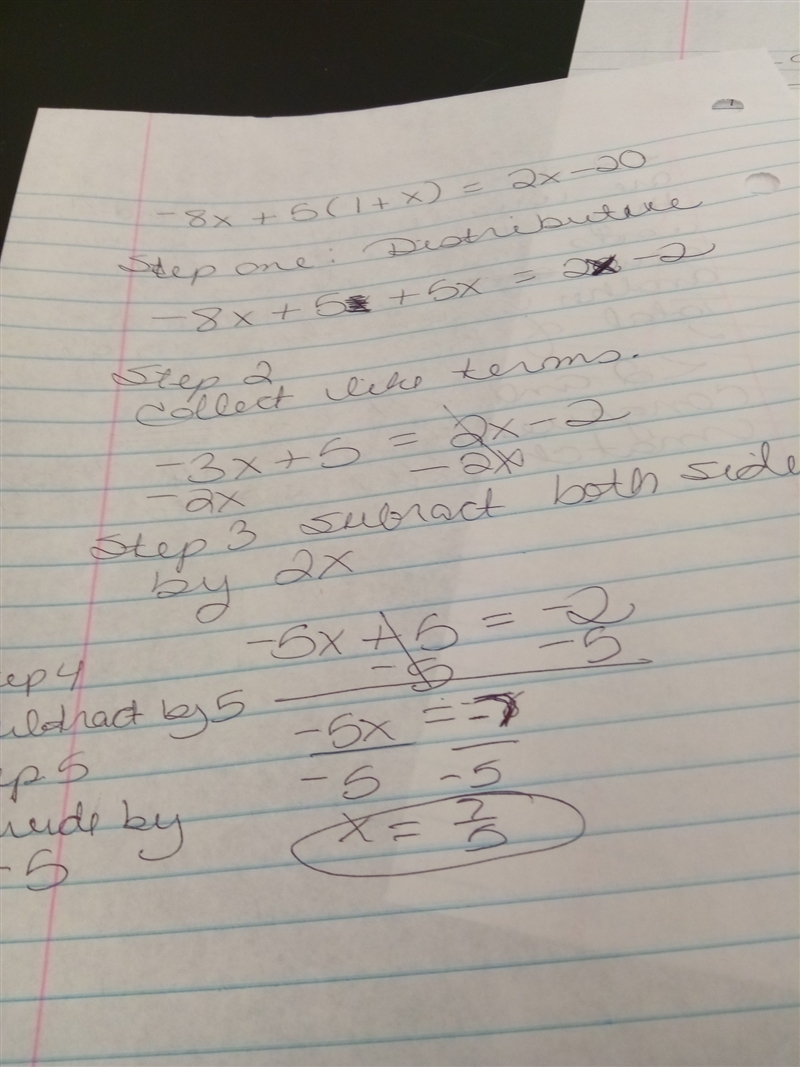 -8x + 5(1+x) = 2x-20
Step one: Distributive
-8x + 5 + 5x = 2x -2
Step 2
Collect like terms.
-3x+5 = 2x-2
-2x -2x
Step 3 subtract both side
by 2x
-5x +5 = -2
-5 -5
ep 4
ubtract by 5
-5x = -7
-5 -5
ep 5
vide by
-5
x = 7/5